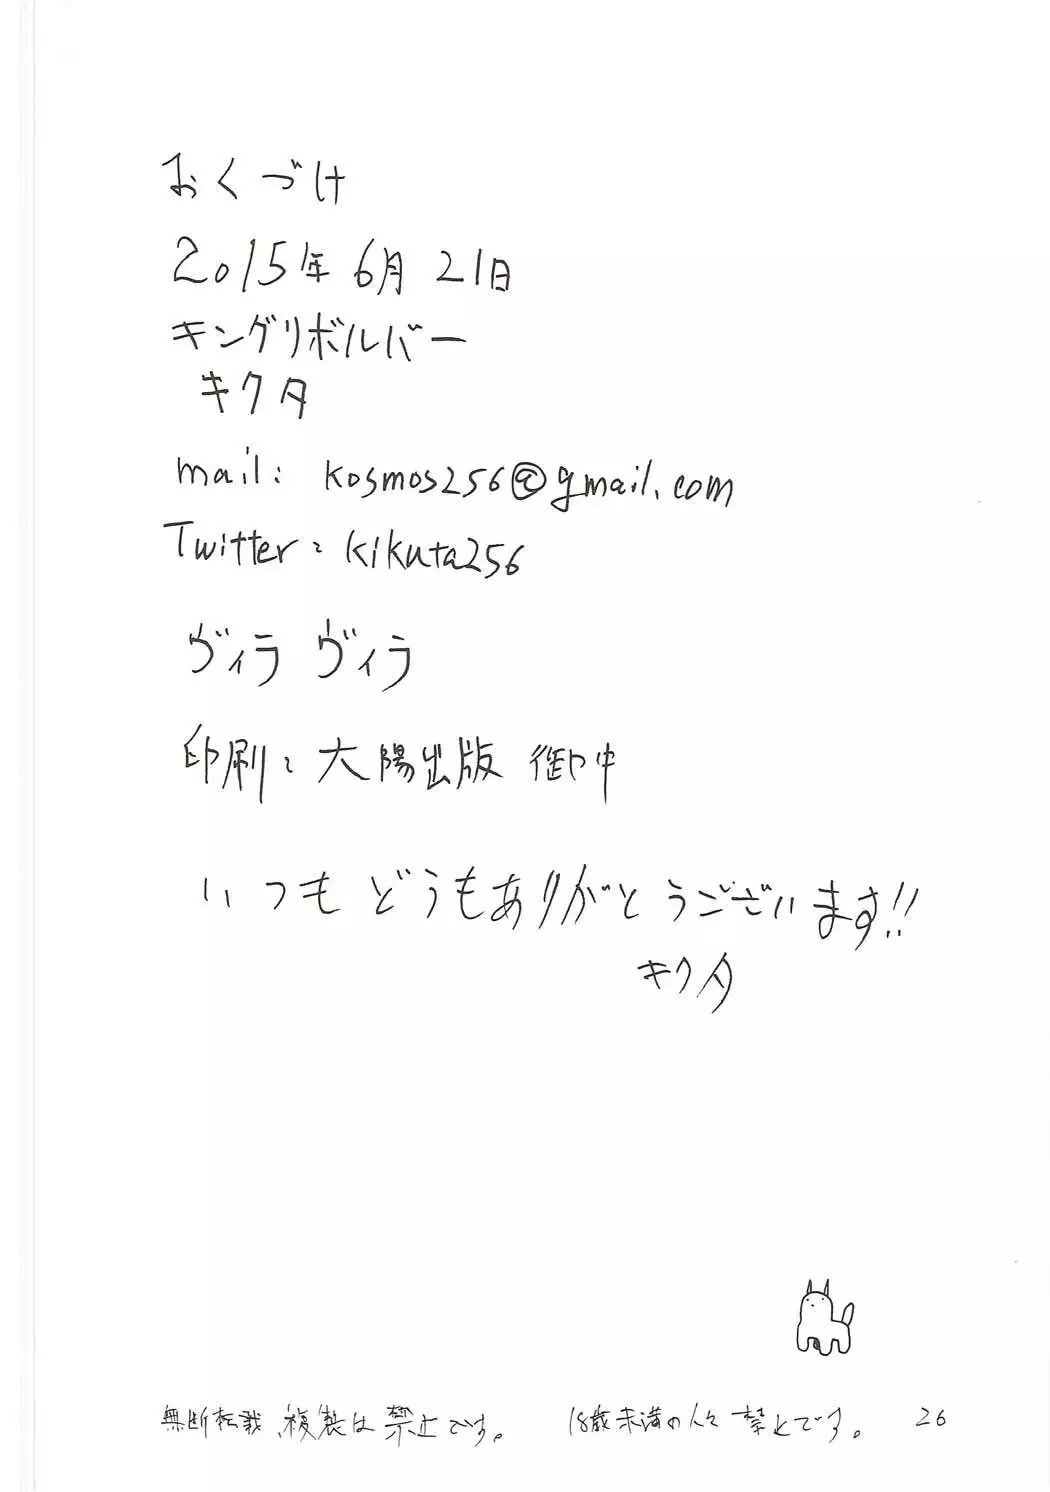 おくづけ
2015年 6月 21日
キングリボルバー
キクタ
mail: kosmos256@gmail.com
Twitter: kikuta256
ヴィラ ヴィラ
印刷: 大陽出版 御中
いつも どうもありがとうございます!!
キクタ
無断転載、複製は禁止です。 18歳未満の人々 禁止です。 26